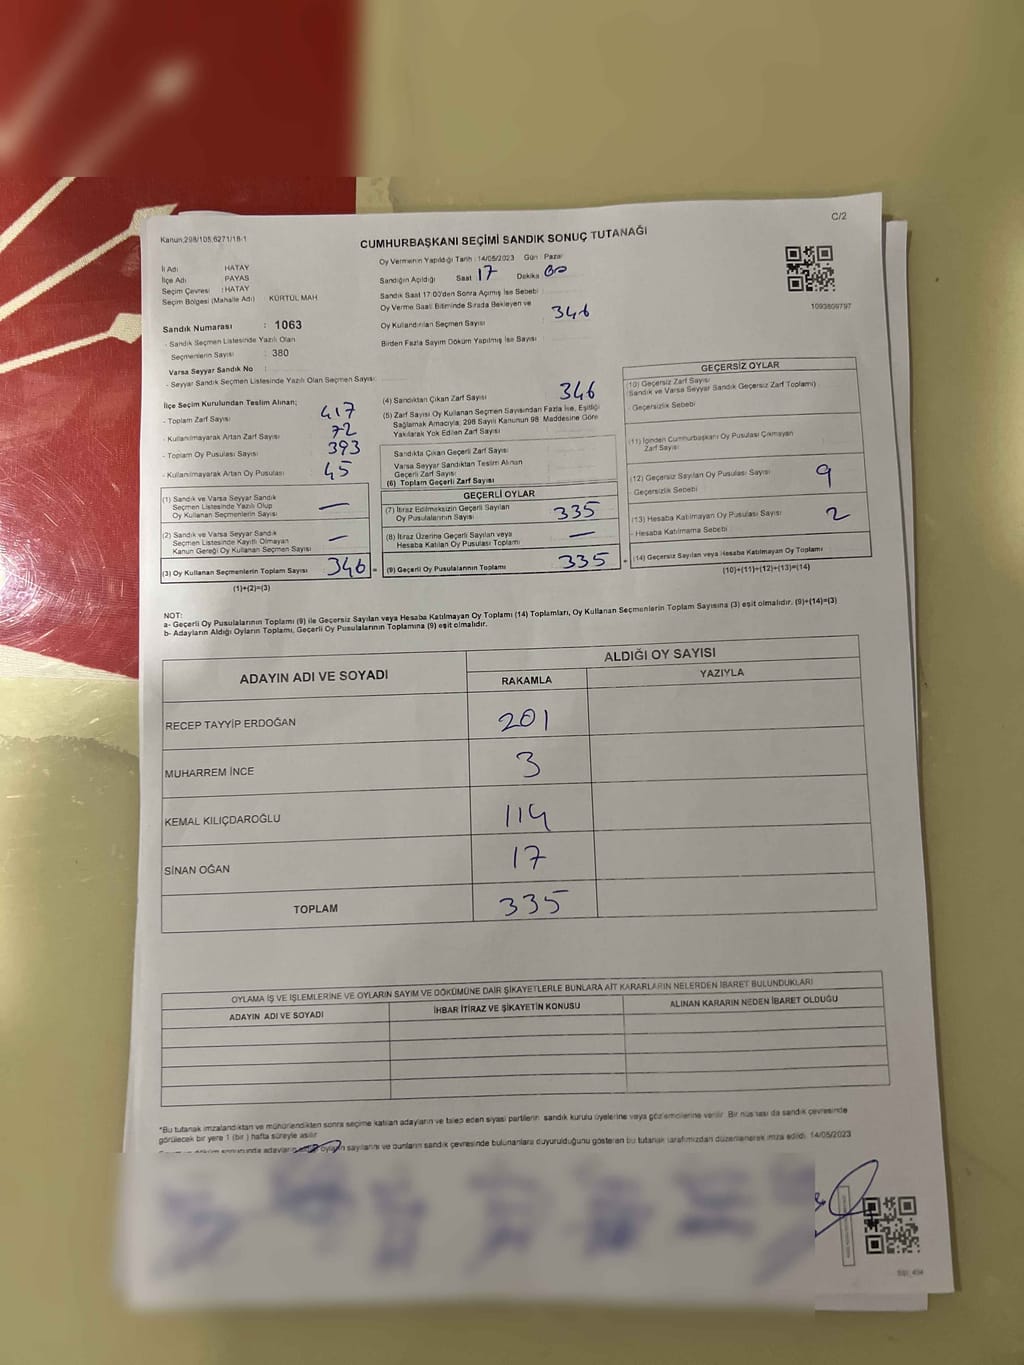 C/2
Kanun:298/105;6271/18-1
CUMHURBAŞKANI SEÇİMİ SANDIK SONUÇ TUTANAĞI
İl Adı HATAY
İlçe Adı PAYAS
Seçim Çevresi : HATAY
Seçim Bölgesi (Mahalle Adı) KÜRTÜL MAH
Sandık Numarası : 1063
- Sandık Seçmen Listesinde Yazılı Olan
Seçmenlerin Sayısı : 380
Varsa Seyyar Sandık No :
- Seyyar Sandık Seçmen Listesinde Yazılı Olan Seçmen Sayısı:
Oy Vermenin Yapıldığı Tarih : 14/05/2023 Gün : Pazar
Sandığın Açıldığı Saat 17 Dakika 00
Sandık Saat 17:00'den Sonra Açılmış İse Sebebi :
Oy Verme Saati Bitiminde Sırada Bekleyen ve
Oy Kullandırılan Seçmen Sayısı 346
Birden Fazla Sayım Döküm Yapılmış İse Sayısı
1093809797
İlçe Seçim Kurulundan Teslim Alınan;
- Toplam Zarf Sayısı 417
- Kullanılmayarak Artan Zarf Sayısı 72
- Toplam Oy Pusulası Sayısı 393
- Kullanılmayarak Artan Oy Pusulası 45
(1) Sandık ve Varsa Seyyar Sandık
Seçmen Listesinde Yazılı Olup
Oy Kullanan Seçmenlerin Sayısı —
(2) Sandık ve Varsa Seyyar Sandık
Seçmen Listesinde Kayıtlı Olmayan
Kanun Gereği Oy Kullanan Seçmen Sayısı —
(3) Oy Kullanan Seçmenlerin Toplam Sayısı 346 =
(1)+(2)=(3)
(4) Sandıktan Çıkan Zarf Sayısı 346
(5) Zarf Sayısı Oy Kullanan Seçmen Sayısından Fazla İse, Eşitliği
Sağlamak Amacıyla, 298 Sayılı Kanunun 98. Maddesine Göre
Yakılarak Yok Edilen Zarf Sayısı
Sandıkta Çıkan Geçerli Zarf Sayısı
Varsa Seyyar Sandıktan Teslim Alınan
Geçerli Zarf Sayısı
(6) Toplam Geçerli Zarf Sayısı
GEÇERLİ OYLAR
(7) İtiraz Edilmeksizin Geçerli Sayılan
Oy Pusulalarının Sayısı 335
(8) İtiraz Üzerine Geçerli Sayılan veya
Hesaba Katılan Oy Pusulası Toplamı —
(9) Geçerli Oy Pusulalarının Toplamı 335 +
GEÇERSİZ OYLAR
(10) Geçersiz Zarf Sayısı
(Sandık ve Varsa Seyyar Sandık Geçersiz Zarf Toplamı)
Geçersizlik Sebebi
(11) İçinden Cumhurbaşkanı Oy Pusulası Çıkmayan
Zarf Sayısı
(12) Geçersiz Sayılan Oy Pusulası Sayısı 9
Geçersizlik Sebebi
(13) Hesaba Katılmayan Oy Pusulası Sayısı 2
- Hesaba Katılmama Sebebi
(14) Geçersiz Sayılan veya Hesaba Katılmayan Oy Toplamı
(10)+(11)+(12)+(13)=(14)
NOT:
a- Geçerli Oy Pusulalarının Toplamı (9) ile Geçersiz Sayılan veya Hesaba Katılmayan Oy Toplamı (14) Toplamları, Oy Kullanan Seçmenlerin Toplam Sayısına (3) eşit olmalıdır. (9)+(14)=(3)
b- Adayların Aldığı Oyların Toplamı, Geçerli Oy Pusulalarının Toplamına (9) eşit olmalıdır.
ADAYIN ADI VE SOYADI ALDIĞI OY SAYISI
RAKAMLA YAZIYLA
RECEP TAYYİP ERDOĞAN 201
MUHARREM İNCE 3
KEMAL KILIÇDAROĞLU 114
SİNAN OĞAN 17
TOPLAM 335
OYLAMA İŞ VE İŞLEMLERİNE VE OYLARIN SAYIM VE DÖKÜMÜNE DAİR ŞİKAYETLERLE BUNLARA AİT KARARLARIN NELERDEN İBARET BULUNDUKLARI
ADAYIN ADI VE SOYADI İHBAR İTİRAZ VE ŞİKAYETİN KONUSU ALINAN KARARIN NEDEN İBARET OLDUĞU
*Bu tutanak imzalandıktan ve mühürlendikten sonra seçime katılan adayların ve talep eden siyasi partilerin sandık kurulu üyelerine veya gözlemcilerine verilir. Bir nüshası da sandık çevresinde
görülecek bir yere 1 (bir ) hafta süreyle asılır
oyların sayılarını ve bunların sandık çevresinde bulunanlara duyurulduğunu gösteren bu tutanak tarafımızdan düzenlenerek imza edildi. 14/05/2023